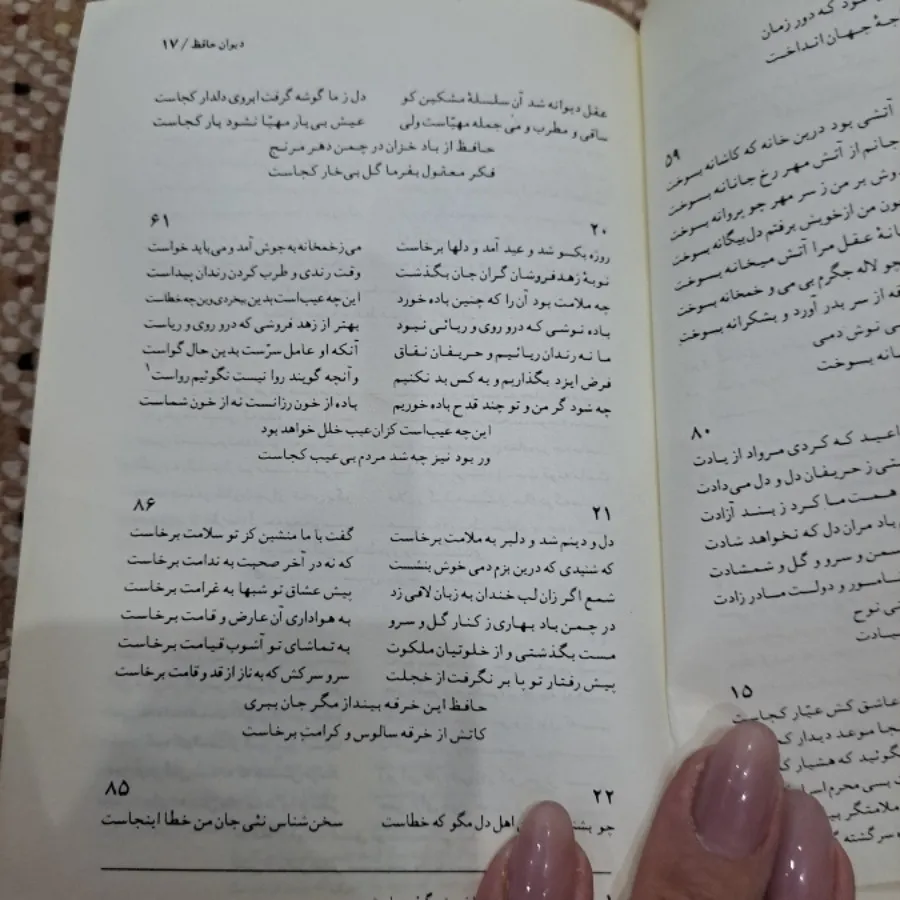 دیوان حافظ / ۱۷
عقل دیوانه شد آن سلسلهٔ مشکین کو دل ز ما گوشه گرفت ابروی دلدار کجاست
ساقی و مطرب و می جمله مهیّاست ولی عیش بی‌یار مهیّا نشود یار کجاست
حافظ از باد خزان در چمن دهر مرنج
فکر معقول بفرما گل بی‌خار کجاست
۲۰ ۶۱
روزه یکسو شد و عید آمد و دلها برخاست می ز خمخانه به جوش آمد و می باید خواست
نوبهٔ زهدفروشان گران جان بگذشت وقت رندی و طرب کردن رندان پیداست
چه ملامت بود آن را که چنین باده خورد این چه عیب است بدین بیخردی وین چه خطاست
باده نوشی که درو روی و ریائی نبود بهتر از زهد فروشی که درو روی و ریاست
ما نه رندان ریائیم و حریفان نفاق آنکه او عامل سرّست بدین حال گواست
فرض ایزد بگذاریم و به کس بد نکنیم وآنچه گویند روا نیست نگوئیم رواست۱
چه شود گر من و تو چند قدح باده خوریم باده از خون رزانست نه از خون شماست
این چه عیب است کزان عیب خلل خواهد بود
ور بود نیز چه شد مردم بی‌عیب کجاست
۲۱ ۸۶
دل و دینم شد و دلبر به ملامت برخاست گفت با ما منشین کز تو سلامت برخاست
که شنیدی که درین بزم دمی خوش بنشست که نه در آخر صحبت به ندامت برخاست
شمع اگر زان لب خندان به زبان لافی زد پیش عشاق تو شبها به غرامت برخاست
در چمن باد بهاری ز کنار گل و سرو به هواداری آن عارض و قامت برخاست
مست بگذشتی و از خلوتیان ملکوت به تماشای تو آشوب قیامت برخاست
پیش رفتار تو پا بر نگرفت از خجلت سرو سرکش که به ناز از قد و قامت برخاست
حافظ این خرقه بینداز مگر جان ببری
کاتش از خرقه سالوس و کرامت برخاست
۲۲ ۸۵
چو اهل دل مگو که خطاست سخن‌شناس نئی جان من خطا اینجاست
که دور زمان
جهان انداخت
۵۹
آتشی بود درین خانه که کاشانه بسوخت
جانم از آتش مهر رخ جانانه بسوخت
بر من ز سر مهر چو پروانه بسوخت
من از خویش برفتم دل بیگانه بسوخت
عقل مرا آتش میخانه بسوخت
چو لاله جگرم بی می و خمخانه بسوخت
از سر بدر آورد و بشکرانه بسوخت
نوش دمی
بسوخت
۸۰
که کردی مرواد از یادت
ز حریفان دل و دل می‌دادت
همت ما کرد ز بند آزادت
مران دل که نخواهد شادت
سمن و سرو و گل و شمشادت
و دولت مادر زادت
نوح
۱۵
عاشق کش عیّار کجاست
موعد دیدار
که هشیار
بسی محرم
سرگشته